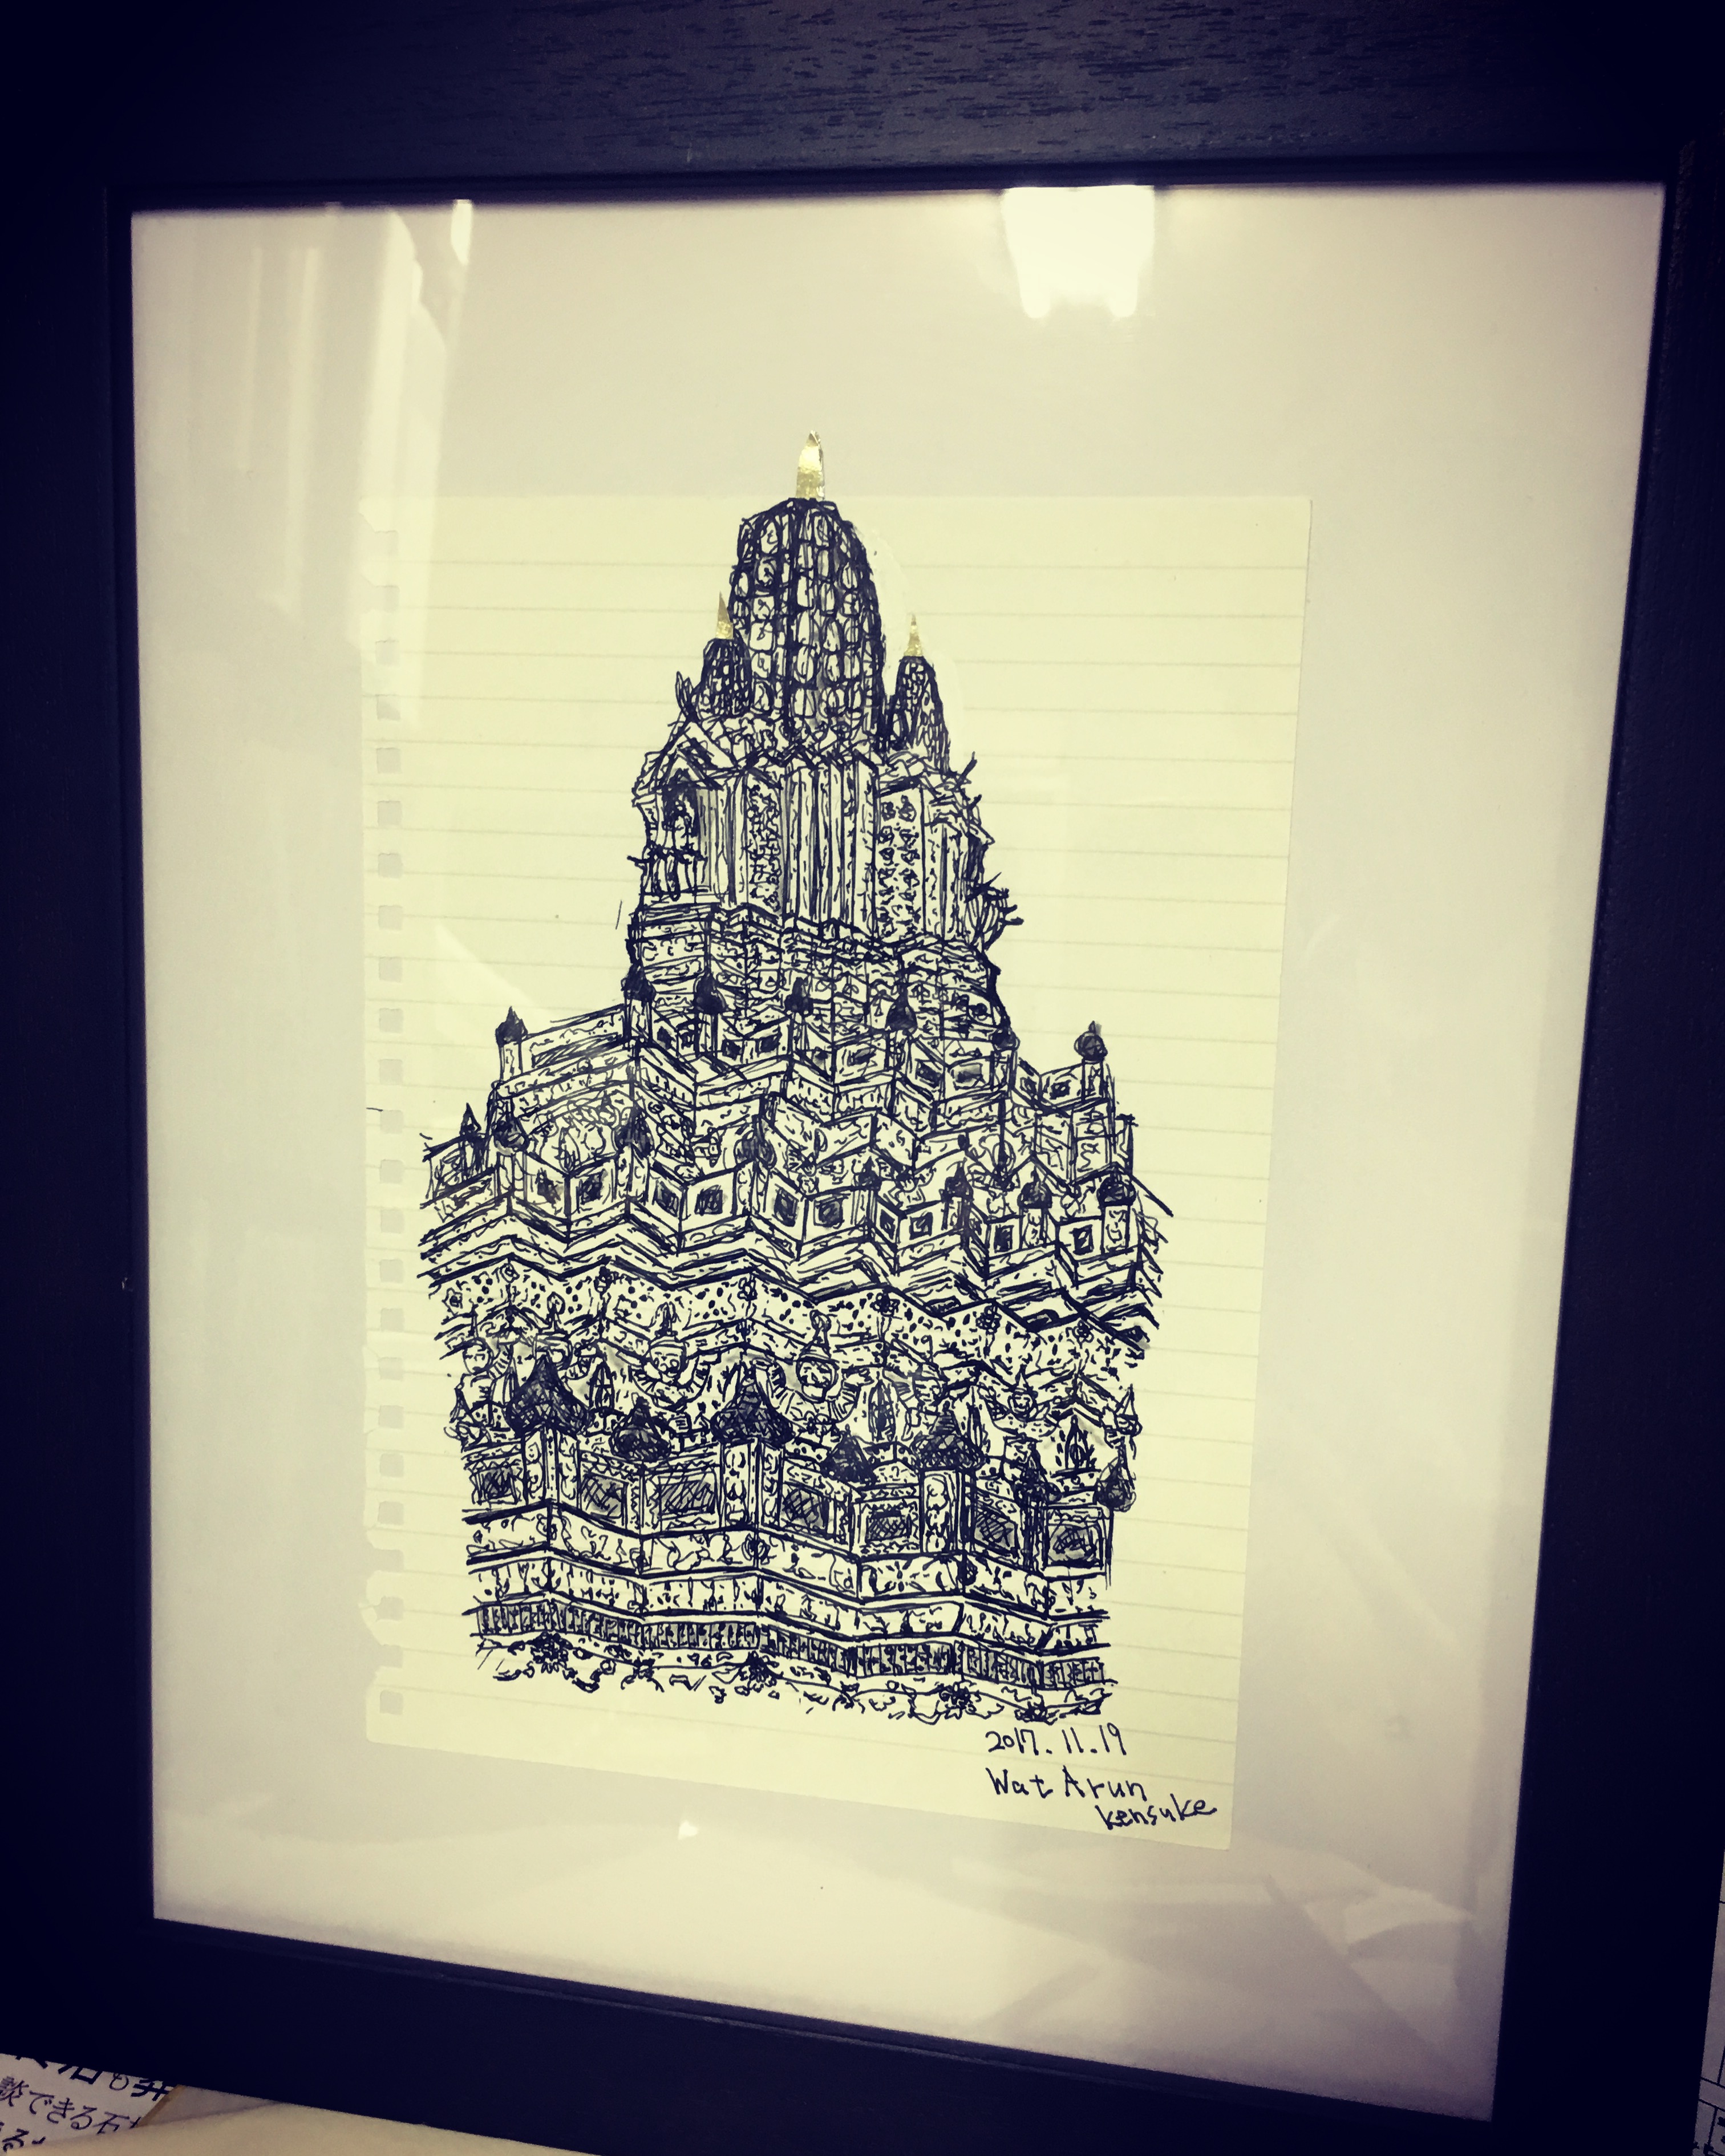 2017.11.19
Wat Arun
kensuke
談できる石